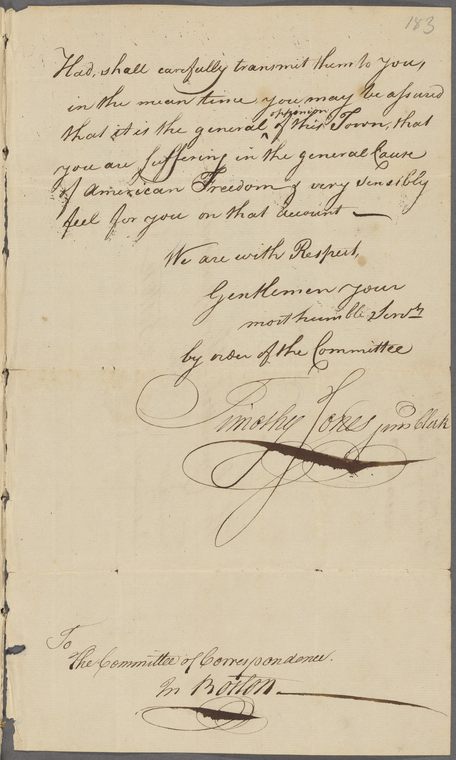 183
Had, shall carefully transmit them to you,
in the mean time you may be assured
oppenion
that it is the general ^ of this Town, that
you are Suffering in the general Cause
of American Freedom & very Sensibly
feel for you on that account —
We are with Respect,
Gentlemen your
most humble Servts
by order of the Committee
Timothy Jones junr Clerk
To
The Committee of Correspondence.
In Boston